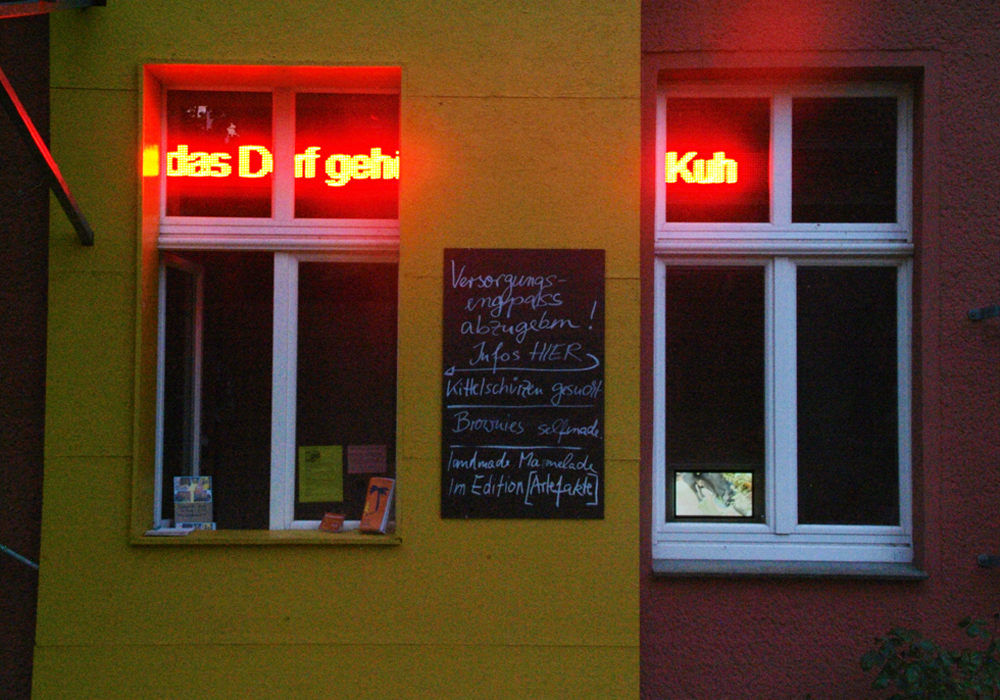 das Dorf gehö
Kuh
Versorgungs-
engpass
abzugeben!
Infos HIER
Kittelschürzen gesucht
Brownies selfmade.
landmade Marmelade
Im Edition [Artefakte]